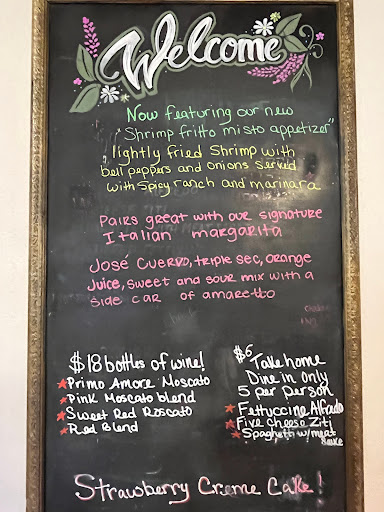 Welcome
Now featuring our new
"Shrimp fritto misto appetizer"
lightly fried Shrimp with
bell peppers and onions served
with spicy ranch and marinara
Pairs great with our signature
Italian margarita
José Cuervo, triple sec, orange
juice, sweet and sour mix with a
side car of amaretto
$18 bottles of wine!
Primo Amore Moscato
Pink Moscato blend
Sweet Red Roscato
Red Blend
$6 Take home
Dine in only
5 per person
Fettuccine Alfredo
Five Cheese Ziti
Spaghetti w/meat
sauce
Strawberry Creme Cake!